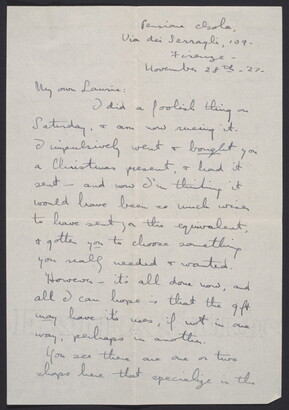 Pensione Chola,
Via dei Serragli, 109.
Firenze.
November 28th - 22.
My own Laurie:
I did a foolish thing on
Saturday, & am now rueing it.
I impulsively went & bought you
a Christmas present, & had it
sent — and now I'm thinking it
would have been so much wiser
to have sent you the equivalent,
& gotten you to choose something
you really needed & wanted.
However — it's all done now, and
all I can hope is that the gift
may have its uses, if not in one
way, perhaps in another.
You see there are one or two
shops here that specialize in the